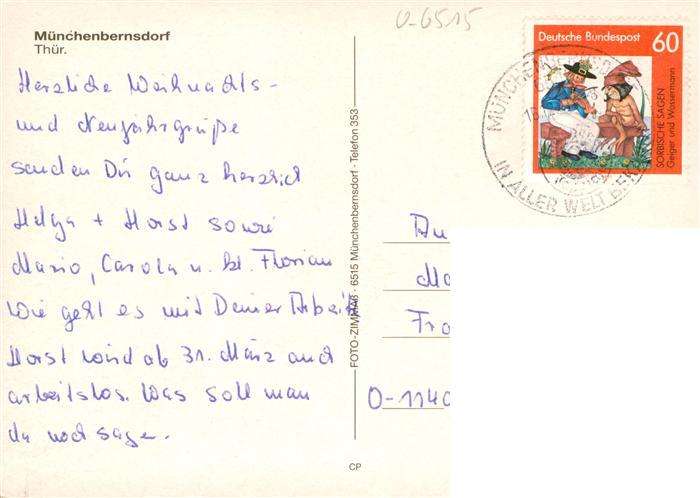 O-6515
Münchenbernsdorf
Thür.
Deutsche Bundespost 60
SORBISCHE SAGEN
Geiger und Wassermann
IN ALLER WELT BE
Herzliche Weihnachts-
und Neujahrsgrüße
senden Dir ganz herzlich
Helga + Horst sowie
Mario, Carola u. kl. Florian
Wie geht es mit Deiner Arbeit
Horst wird ab 31. März auch
arbeitslos. Was soll man
da noch sagen.
FOTO-ZIMMAß · 6515 Münchenbernsdorf · Telefon 353
CP
O-1140